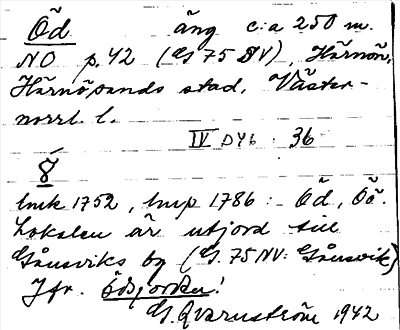 Öd äng c:a 250 m.
NO p. 42 (G 75 NV), Härnön,
Härnösands stad, Väster-
norrl. l.
IV DY6 : 36
ö́
lmk 1752, lmp 1786: Öd, Öö.
Lokalen är utjord till
Gånsviks by (G. 75 NV: Gånsvik)
Jfr. ödsjorden!
G. Qvarnström 1942